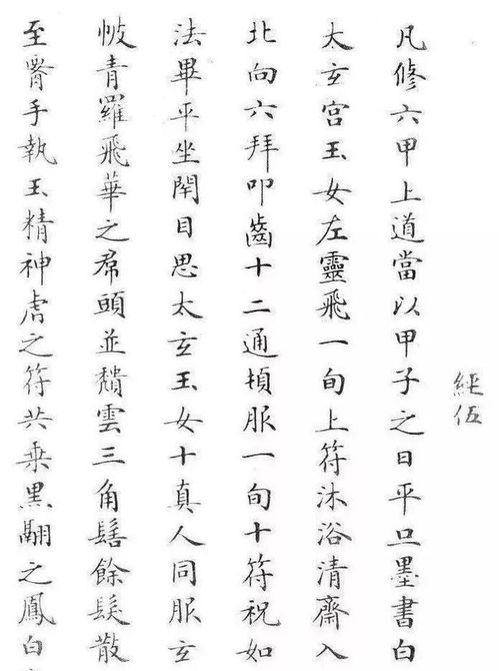 伍
凡修六甲上道當以甲子之日平旦墨書白
太玄宫玉女左靈飛一旬上符沐浴清齋入
北向六拜叩齒十二通頓服一旬十符祝如
法畢平坐閉目思太玄玉女十真人同服玄
帔青羅飛華之帬頭並頹雲三角髻餘髮散
至腰手執玉精神虎之符共乘黑翮之鳳白